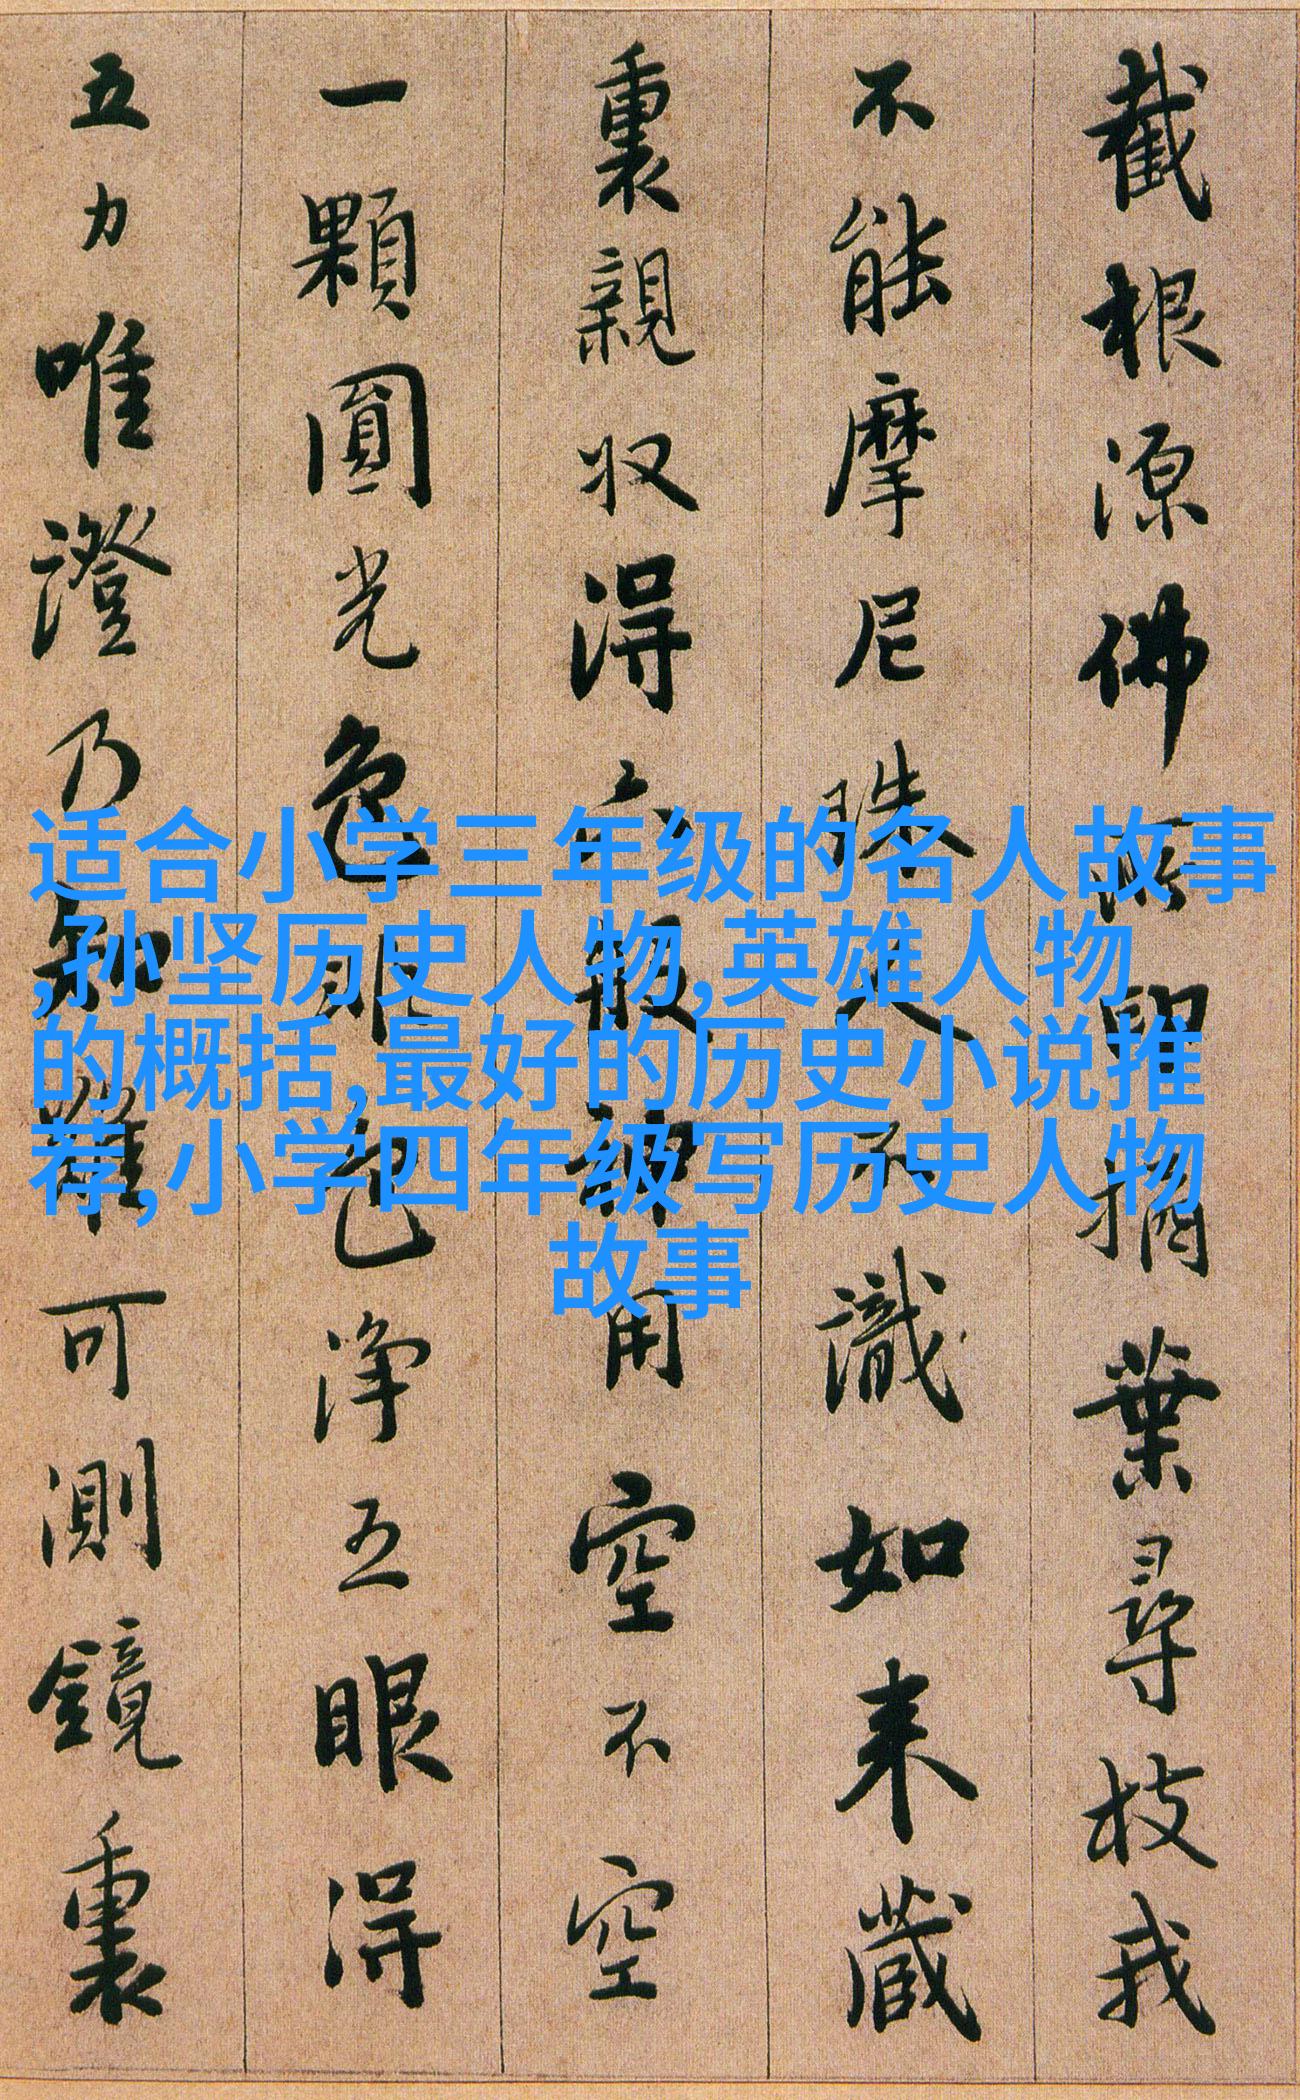 截根源佛所印摘葉尋枝我
不能摩尼珠人不識如来藏
裏親収得六般神用空不空
一顆圓光色非色淨五眼得
五力唯澄乃知難可測鏡裏
适合小学三年级的名人故事
,孙坚历史人物,英雄人物
的概括,最好的历史小说推
荐,小学四年级写历史人物
故事